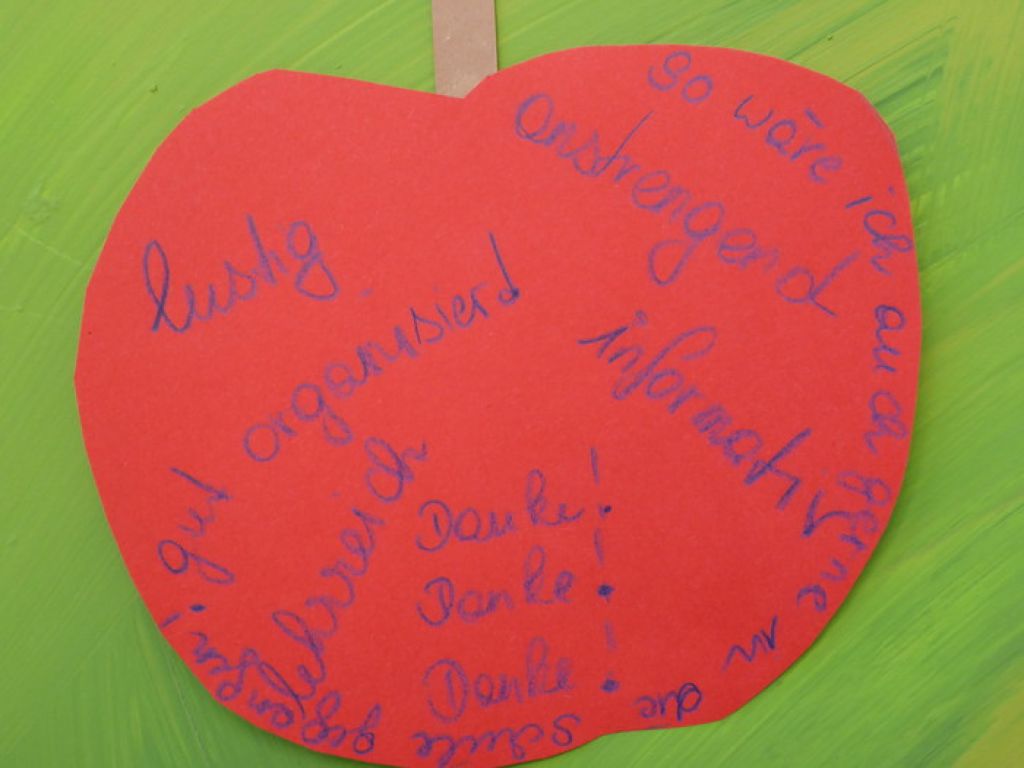 So wäre ich auch gerne in die Schule gegangen!
anstrengend
lustig
gut organisiert
informativ
lehrreich
Danke!
Danke!
Danke!